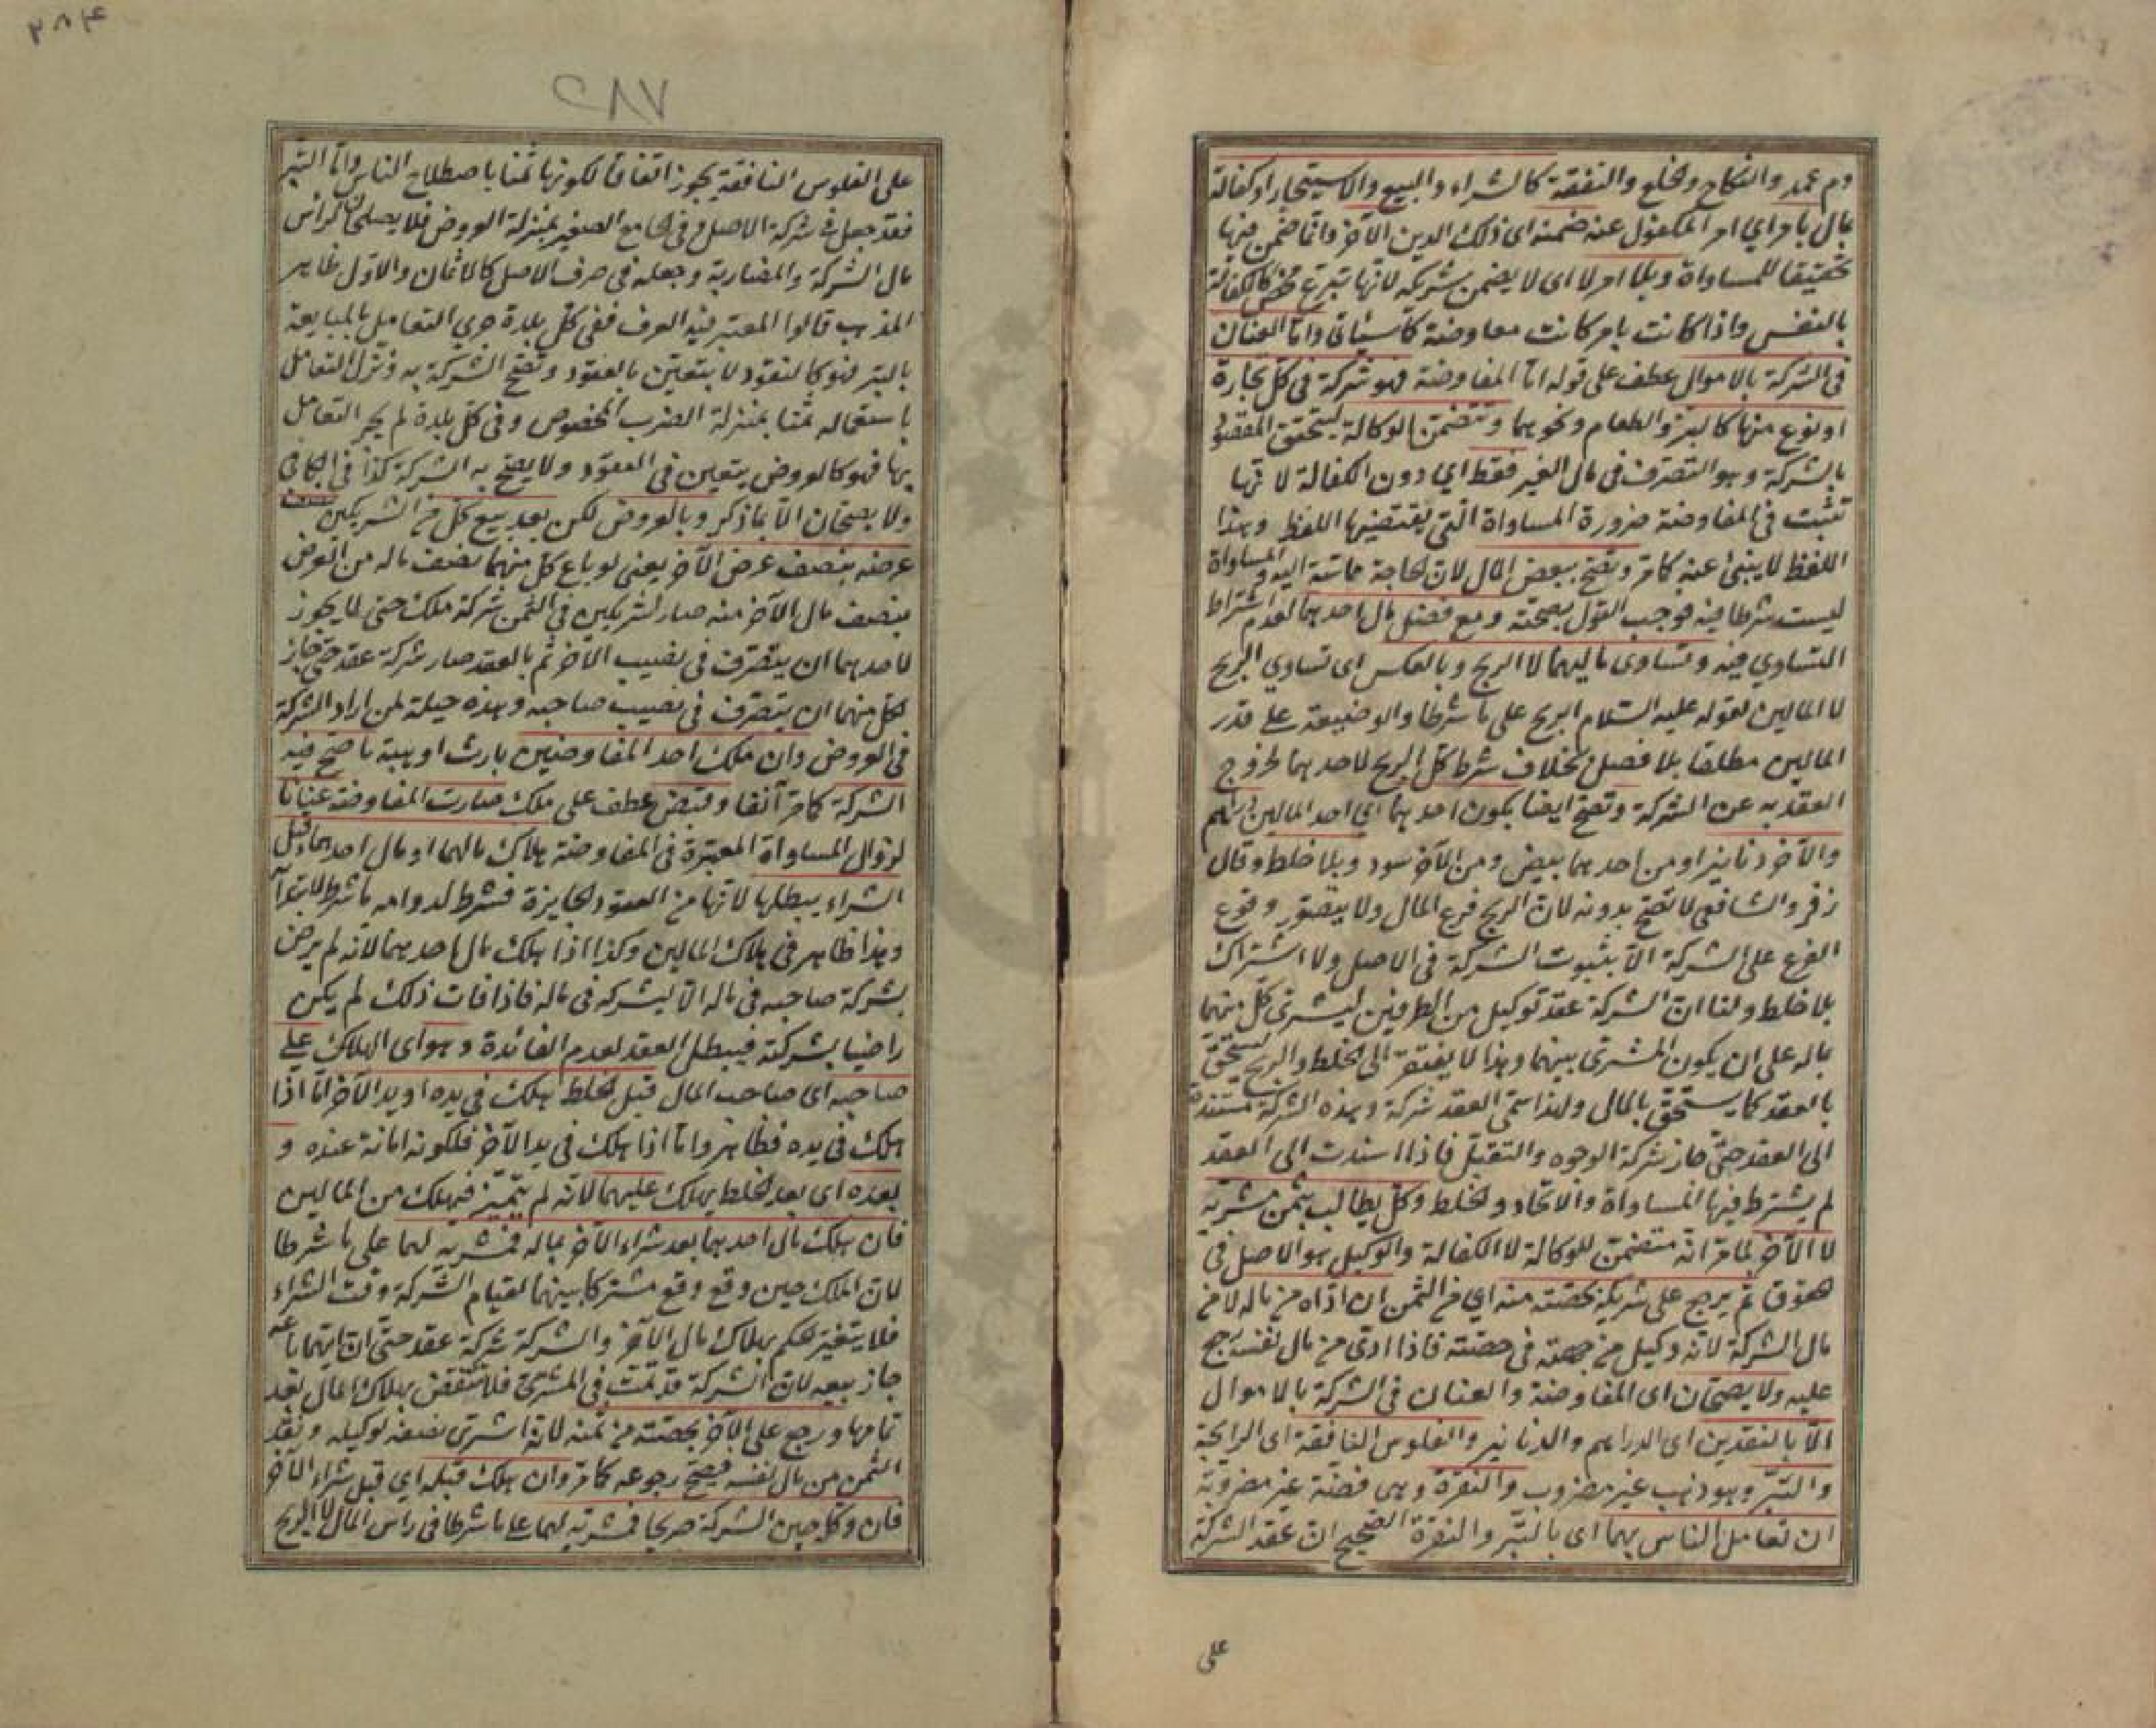 دم عمد والنكاح والخلع والنفقة كالشراء والبيع والاستيجار او كفالة
بمال بامر اي امر المكفول عنه ضمنه اى ذلك الدين الآخر وانما ضمن فيها
تحقيقا للمساواة وبلا امر لا اى لا يضمن شريكه لانها تبرع محض كالكفالة
بالنفس واذا كانت بامر كانت معاوضة كما سيأتى واما العنان
فى الشركة بالاموال عطف على قوله اما المفاوضة فهو شركة فى كل تجارة
او نوع منها كالبز والطعام ونحوهما وتتضمن الوكالة ليتحقق المقصود
بالشركة وهو التصرف فى مال الغير فقط اي دون الكفالة لانها
تثبت فى المفاوضة ضرورة المساواة التى يقتضيها اللفظ وهذا
اللفظ لا ينبئ عنه كما مر وتصح ببعض المال لان الحاجة ماسة اليه والمساواة
ليست شرطا فيه فوجب القول بصحته ومع فضل مال احدهما لعدم اشتراط
التساوي فيه وتساوى ماليهما لا الربح وبالعكس اى تساوي الربح
لا المالين لقوله عليه السلام الربح على ما شرطا والوضيعة على قدر
المالين مطلقا بلا فصل بخلاف شرط كل الربح لاحدهما لخروج
العقد به عن الشركة وتصح ايضا بكون احدهما اى احد المالين دراهم
والآخر دنانير او من احدهما بيض ومن الآخر سود وبلا خلط وقال
زفر والشافعى لا تصح بدونه لان الربح فرع المال ولا يتصور وقوع
الفرع على الشركة الا بثبوت الشركة فى الاصل ولا اشتراك
بلا خلط ولنا ان الشركة عقد توكيل من الطرفين ليشترى كل منهما
بماله على ان يكون المشترى بينهما وهذا لا يفتقر الى الخلط والربح يستحق
بالعقد كما يستحق بالمال ولهذا سمى العقد شركة وهذه الشركة مستندة
الى العقد حتى جاز شركة الوجوه والتقبل فاذا اسندت الى العقد
لم يشترط فيها المساواة والاتحاد والخلط وكل يطالب بثمن مشريه
لا الآخر لما مر انه متضمن للوكالة لا الكفالة والوكيل هو الاصل فى
حقوق ثم يرجع على شريكه بحصته منه اي من الثمن ان اداه من ماله لا من
مال الشركة لانه وكيل من جهته فى حصته فاذا ادى من مال نفسه رجع
عليه ولا يصحان اى المفاوضة والعنان فى الشركة بالاموال
الا بالنقدين اى الدراهم والدنانير والفلوس النافقة اى الرايجة
والتبر وهو ذهب غير مضروب والنقرة وهى فضة غير مضروبة
ان تعامل الناس بهما اى بالتبر والنقرة الصحيح ان عقد الشركة
على
٢٨٤
٢٨٧
على الفلوس النافقة يجوز اتفاقا لكونها ثمنا باصطلاح الناس واما التبر
فقد جعل فى شركة الاصل وفى الجامع الصغير بمنزلة العروض فلا يصلحان لرأس
مال الشركة والمضاربة وجعله فى صرف الاصل كالاثمان والاول ظاهر
المذهب قالوا المعتبر فيه العرف ففى كل بلدة جرى التعامل بالمبايعة
بالتبر فهو كالنقود لا يتعين بالعقود وتصح الشركة به ونزل التعامل
باستعماله ثمنا بمنزلة الضرب المخصوص وفى كل بلدة لم يجر التعامل
بها فهو كالعروض يتعين فى العقود ولا يصح به الشركة كذا فى الكافى
ولا يصحان الا بما ذكر وبالعروض لكن بعد بيع كل من الشريكين نصف
عرضه بنصف عرض الآخر يعنى لو باع كل منهما نصف ماله من العرض
بنصف مال الآخر منه صار شريكين فى الثمن شركة ملك حتى لا يجوز
لاحدهما ان يتصرف فى نصيب الآخر ثم بالعقد صار شركة عقد حتى جاز
لكل منهما ان يتصرف فى نصيب صاحبه وهذه حيلة لمن اراد الشركة
فى العروض وان ملك احد المفاوضين بارث او هبة ما صح فيه
الشركة كما مر آنفا وقبض عطف على ملك صارت المفاوضة عنانا
لزوال المساواة المعتبرة فى المفاوضة هلاك مالهما او مال احدهما قبل
الشراء يبطلها لانها من العقود الجايزة فشرط لدوامه ما شرط لابتدائه
وهذا ظاهر فى هلاك المالين وكذا اذا هلك مال احدهما لانه لم يرض
بشركة صاحبه فى ماله الا ليشركه فى ماله فاذا فات ذلك لم يكن
راضيا بشركته فيبطل العقد لعدم الفائدة وهو اى الهلاك على
صاحبه اى صاحب المال قبل الخلط هلك فى يده او يد الآخر اما اذا
هلك فى يده فظاهر واما اذا هلك فى يد الآخر فلكونه امانة عنده و
بعده اى بعد الخلط يهلك عليهما لانه لم يتميز فيهلك من المالين
فان هلك مال احدهما بعد شراء الآخر بماله فمشريه لهما على ما شرطا
لان الملك حين وقع وقع مشتركا بينهما لقيام الشركة وقت الشراء
فلا يتغير الحكم بهلاك مال الآخر والشركة شركة عقد حتى ان ايهما باعه
جاز بيعه لان الشركة قد تمت فى المشترى فلا تنتقض بهلاك المال بعد
تمامها ورجع على الآخر بحصته من ثمنه لانه اشترى نصفه لوكيله ونقد
الثمن من مال نفسه فيصح رجوعه كما مر وان هلك قبله اي قبل شراء الآخر
فان وكل حين الشركة صريحا فمشريه لهما على ما شرطا فى راس المال لا الربح